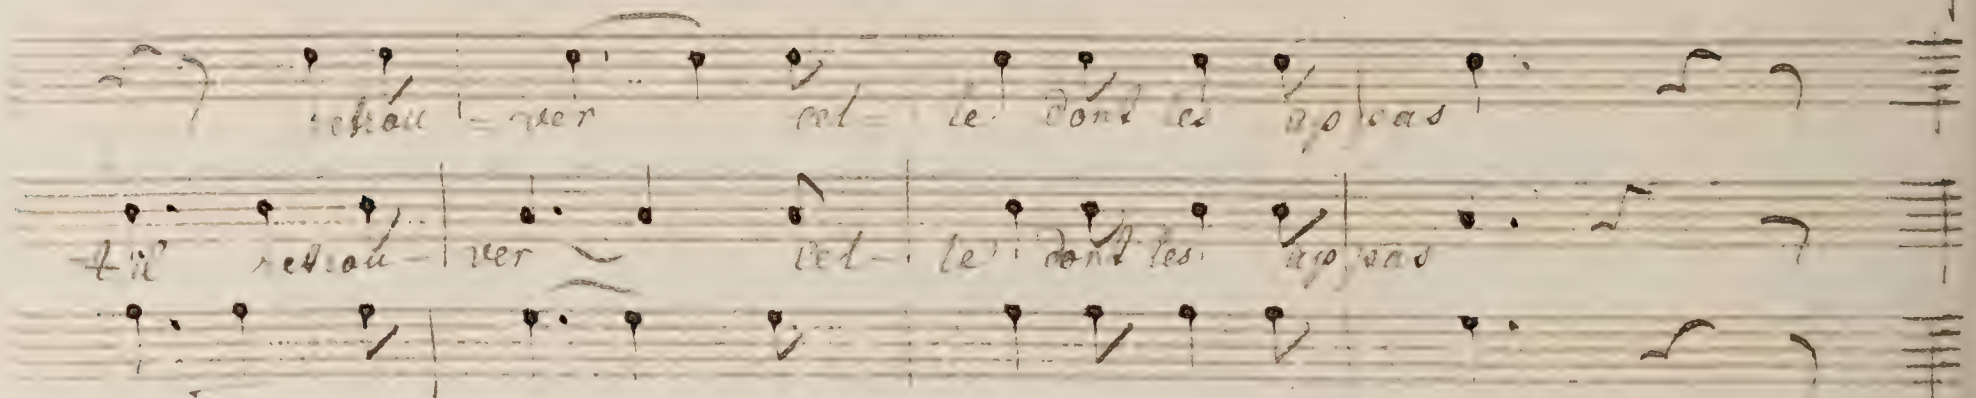 retrou - ver cel - le dont les appas
t-il retrou - ver cel - le dont les appas